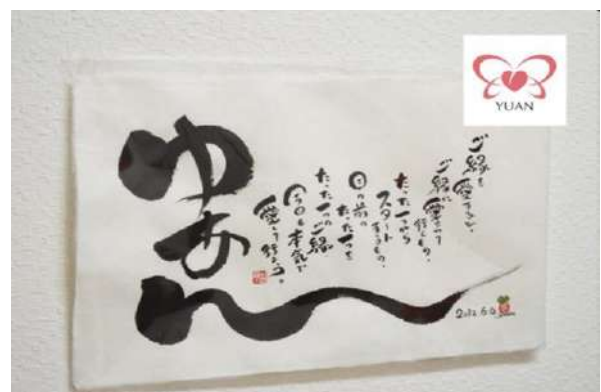 ゆあん
ご縁を愛すると、
ご縁に愛されて
行くもの。
たった一つから
スタートするもの。
目の前の
たった一つを
たった一つのご縁
今日も本気で
愛して行こう。
YUAN